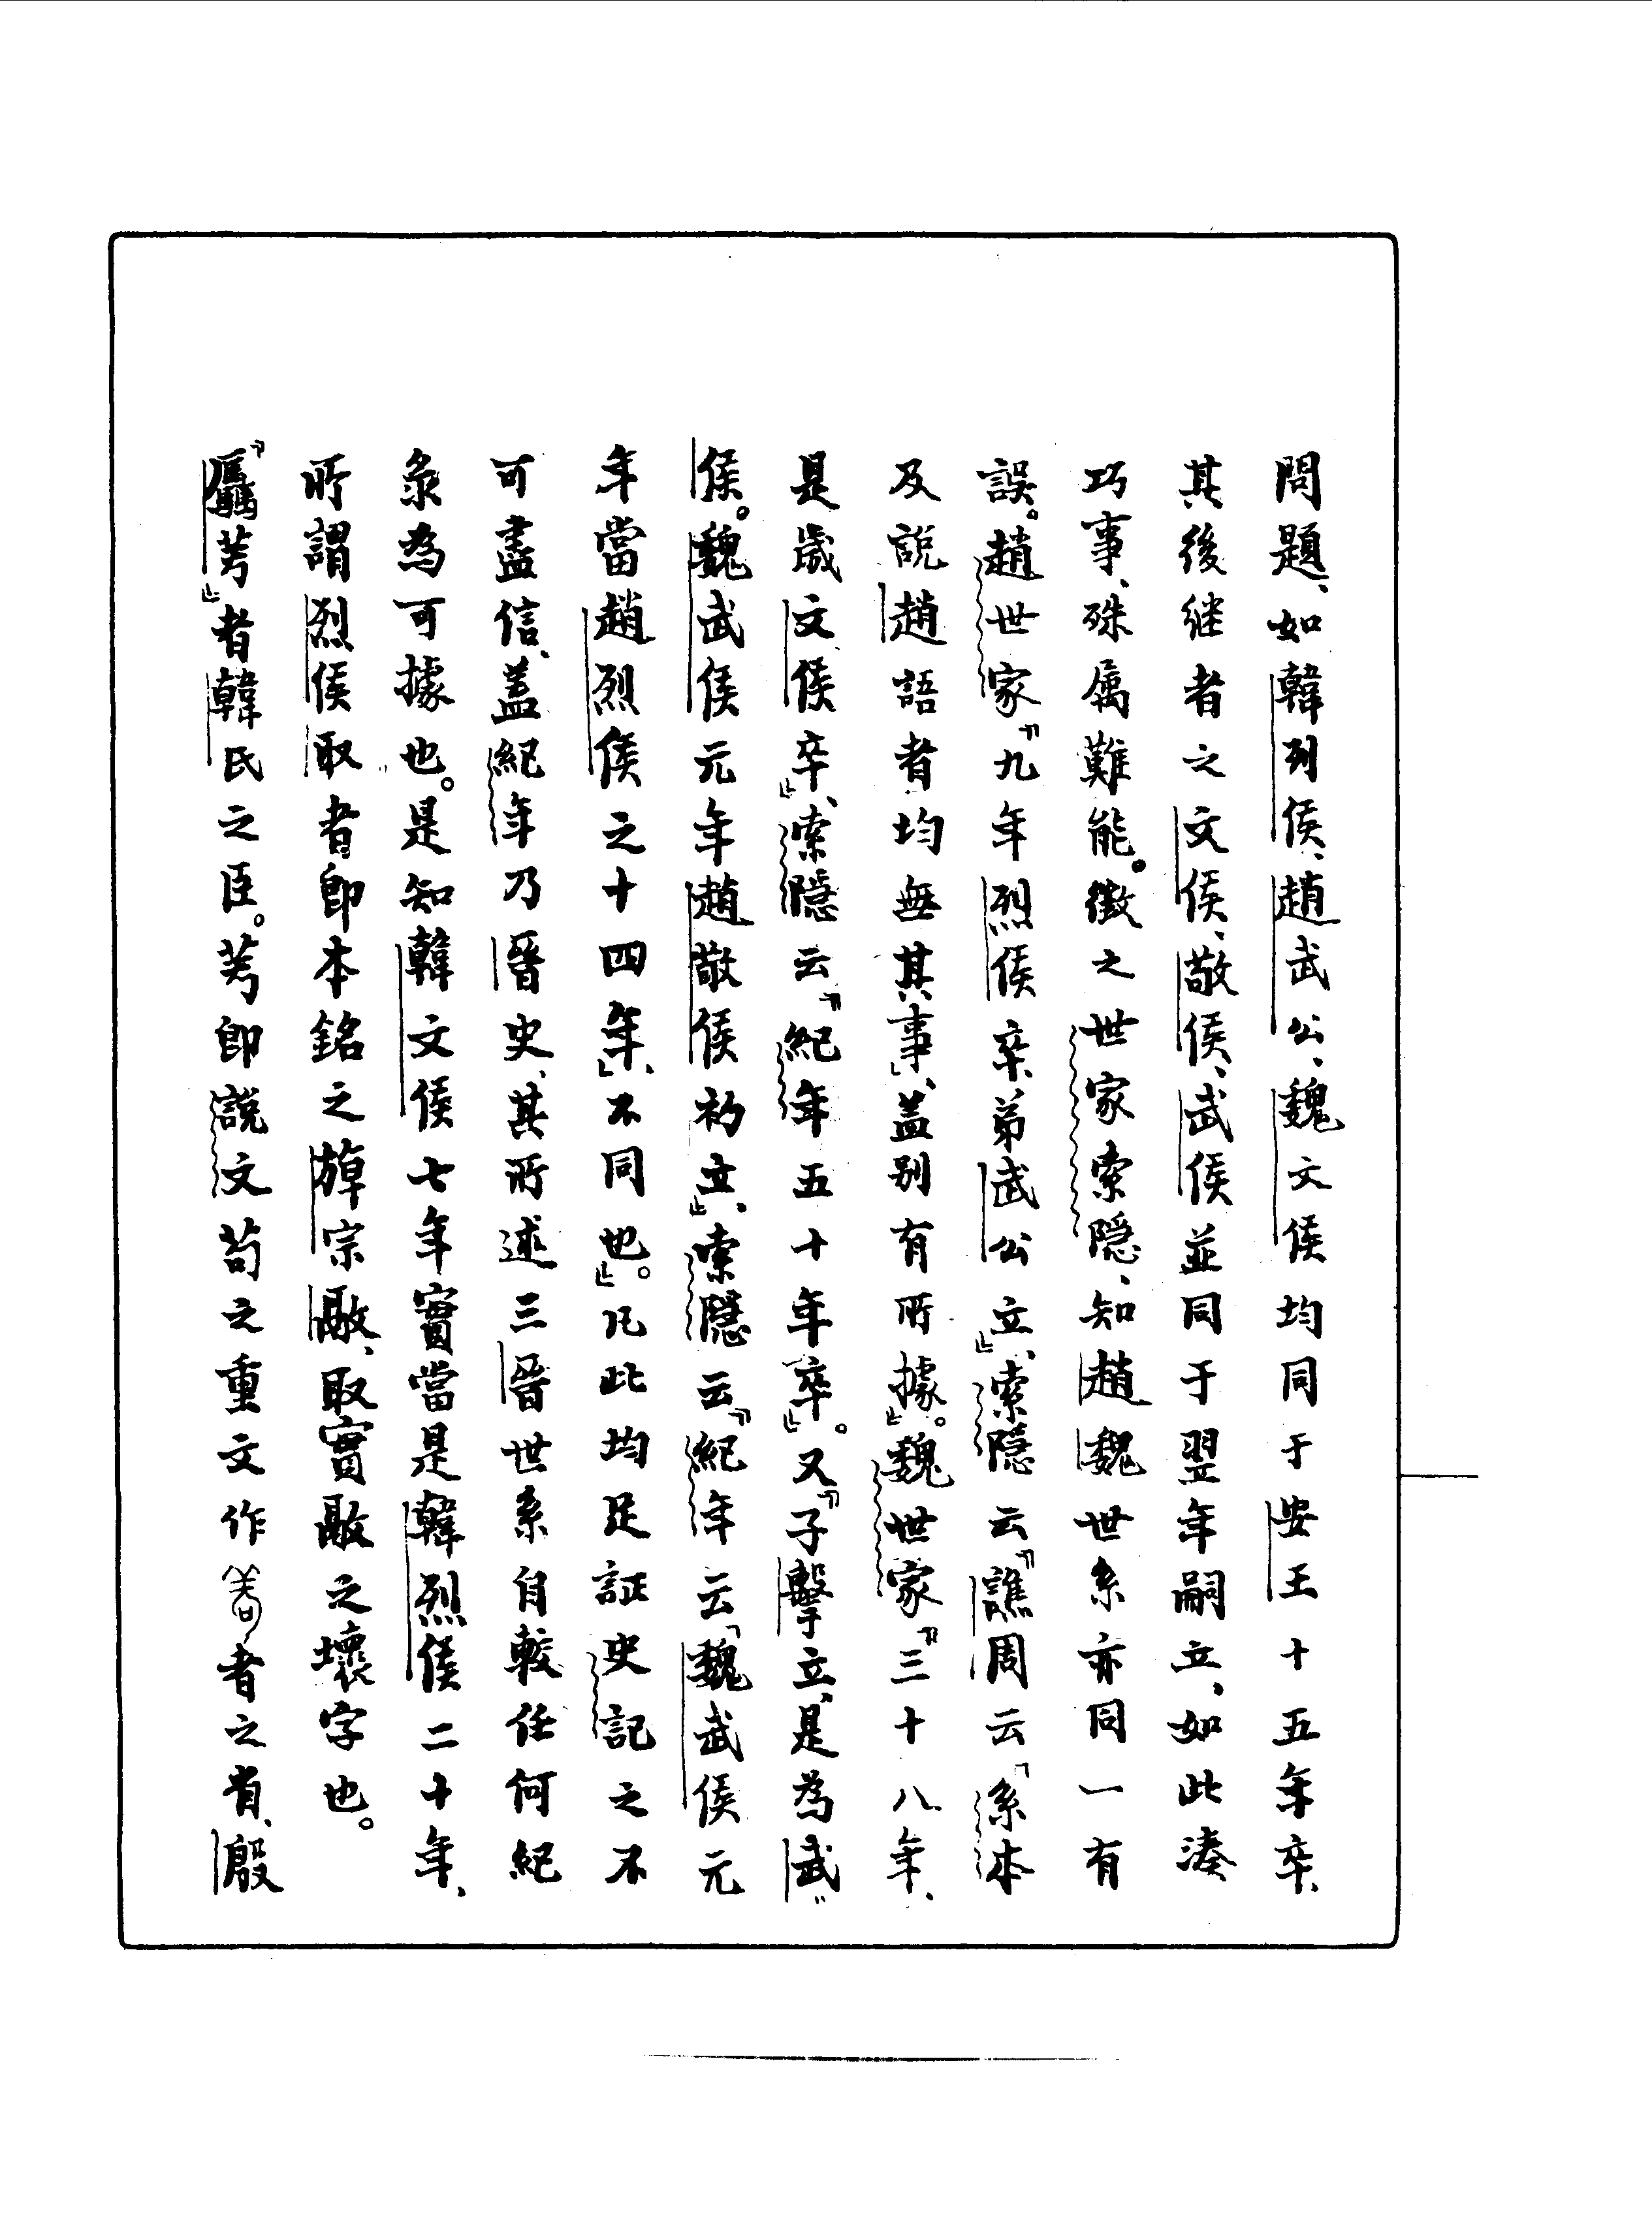 問題、如韓列侯、趙武公、魏文侯均同于安王十五年卒、
其後継者之文侯、敬侯、武侯並同于翌年嗣立、如此湊
巧事、殊属難能。徵之世家索隐、知趙魏世系亦同一有
誤。趙世家『九年烈侯卒、弟武公立』、索隐云『譙周云「系本
及說趙語者均無其事」、蓋别有所據』。魏世家『三十八年、
是歲文侯卒』、索隱云『紀年五十年卒』。又『子擊立、是為武
侯。魏武侯元年趙敬侯初立』、索隱云『紀年云「魏武侯元
年當趙烈侯之十四年」、不同也』。凡此均足証史記之不
可盡信、蓋紀年乃晉史、其所述三晉世系自較任何紀
彔為可據也。是知韓文侯七年實當是韓烈侯二十年、
所謂烈侯取者卽本銘之倝宗敢、取實敢之壞字也。
『驫𦮃』者韓氏之臣。𦮃卽說文茍之重文作者之省、殷